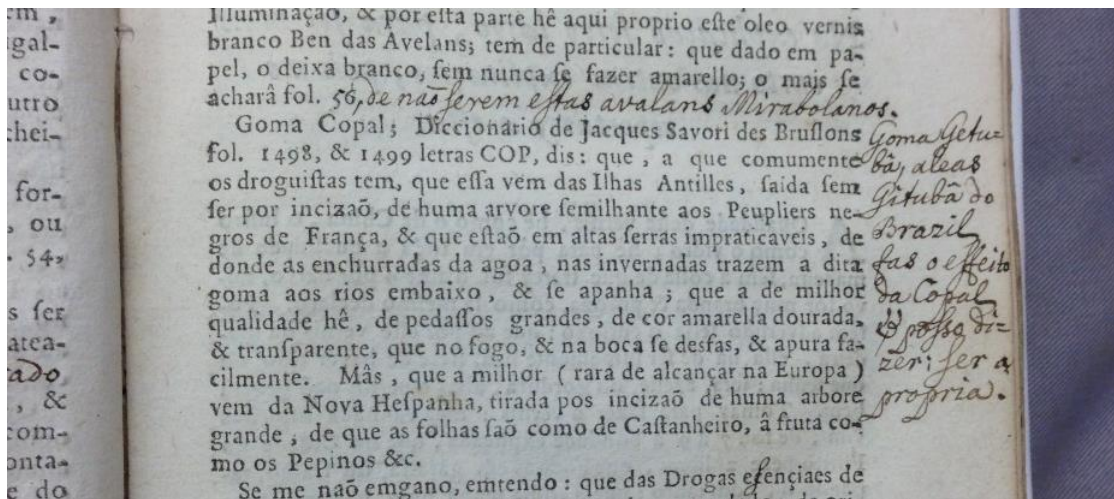 em,
gal-
co-
utro
chei-
for-
, ou
54,
s ſer
atea-
ado
, &
com-
onta-
e do
Illuminaçaõ, & por eſta parte hê aqui proprio eſte oleo vernis
branco Ben das Avelans; tem de particular: que dado em pa-
pel, o deixa branco, ſem nunca ſe fazer amarello; o mais ſe
acharâ fol. 56, de naõ ſerem eſtas avalans Mirabolanos.
Goma Copal; Diccionario de Jacques Savori des Bruſlons
fol. 1498, & 1499 letras COP, dis: que, a que comumente
os droguiſtas tem, que eſſa vem das Ilhas Antilles, ſaida ſem
ſer por incizaõ, de huma arvore ſemilhante aos Peupliers ne-
gros de França, & que eſtaõ em altas ſerras impraticaveis, de
donde as enchurradas da agoa, nas invernadas trazem a dita
goma aos rios embaixo, & ſe apanha; que a de milhor
qualidade hê, de pedaſſos grandes, de cor amarella dourada,
& tranſparente, que no fogo, & na boca ſe desfas, & apura fa-
cilmente. Mâs, que a milhor (rara de alcançar na Europa)
vem da Nova Heſpanha, tirada pos incizaõ de huma arbore
grande, de que as folhas ſaõ como de Caſtanheiro, â fruta co-
mo os Pepinos &c.
Se me naõ emgano, emtendo: que das Drogas eſençiaes de
Goma Getu=
bâ, aleas
Gitubâ do
Brazil
fas o effeito
da Copal
& poſſo di=
zer; ſer a
propria.